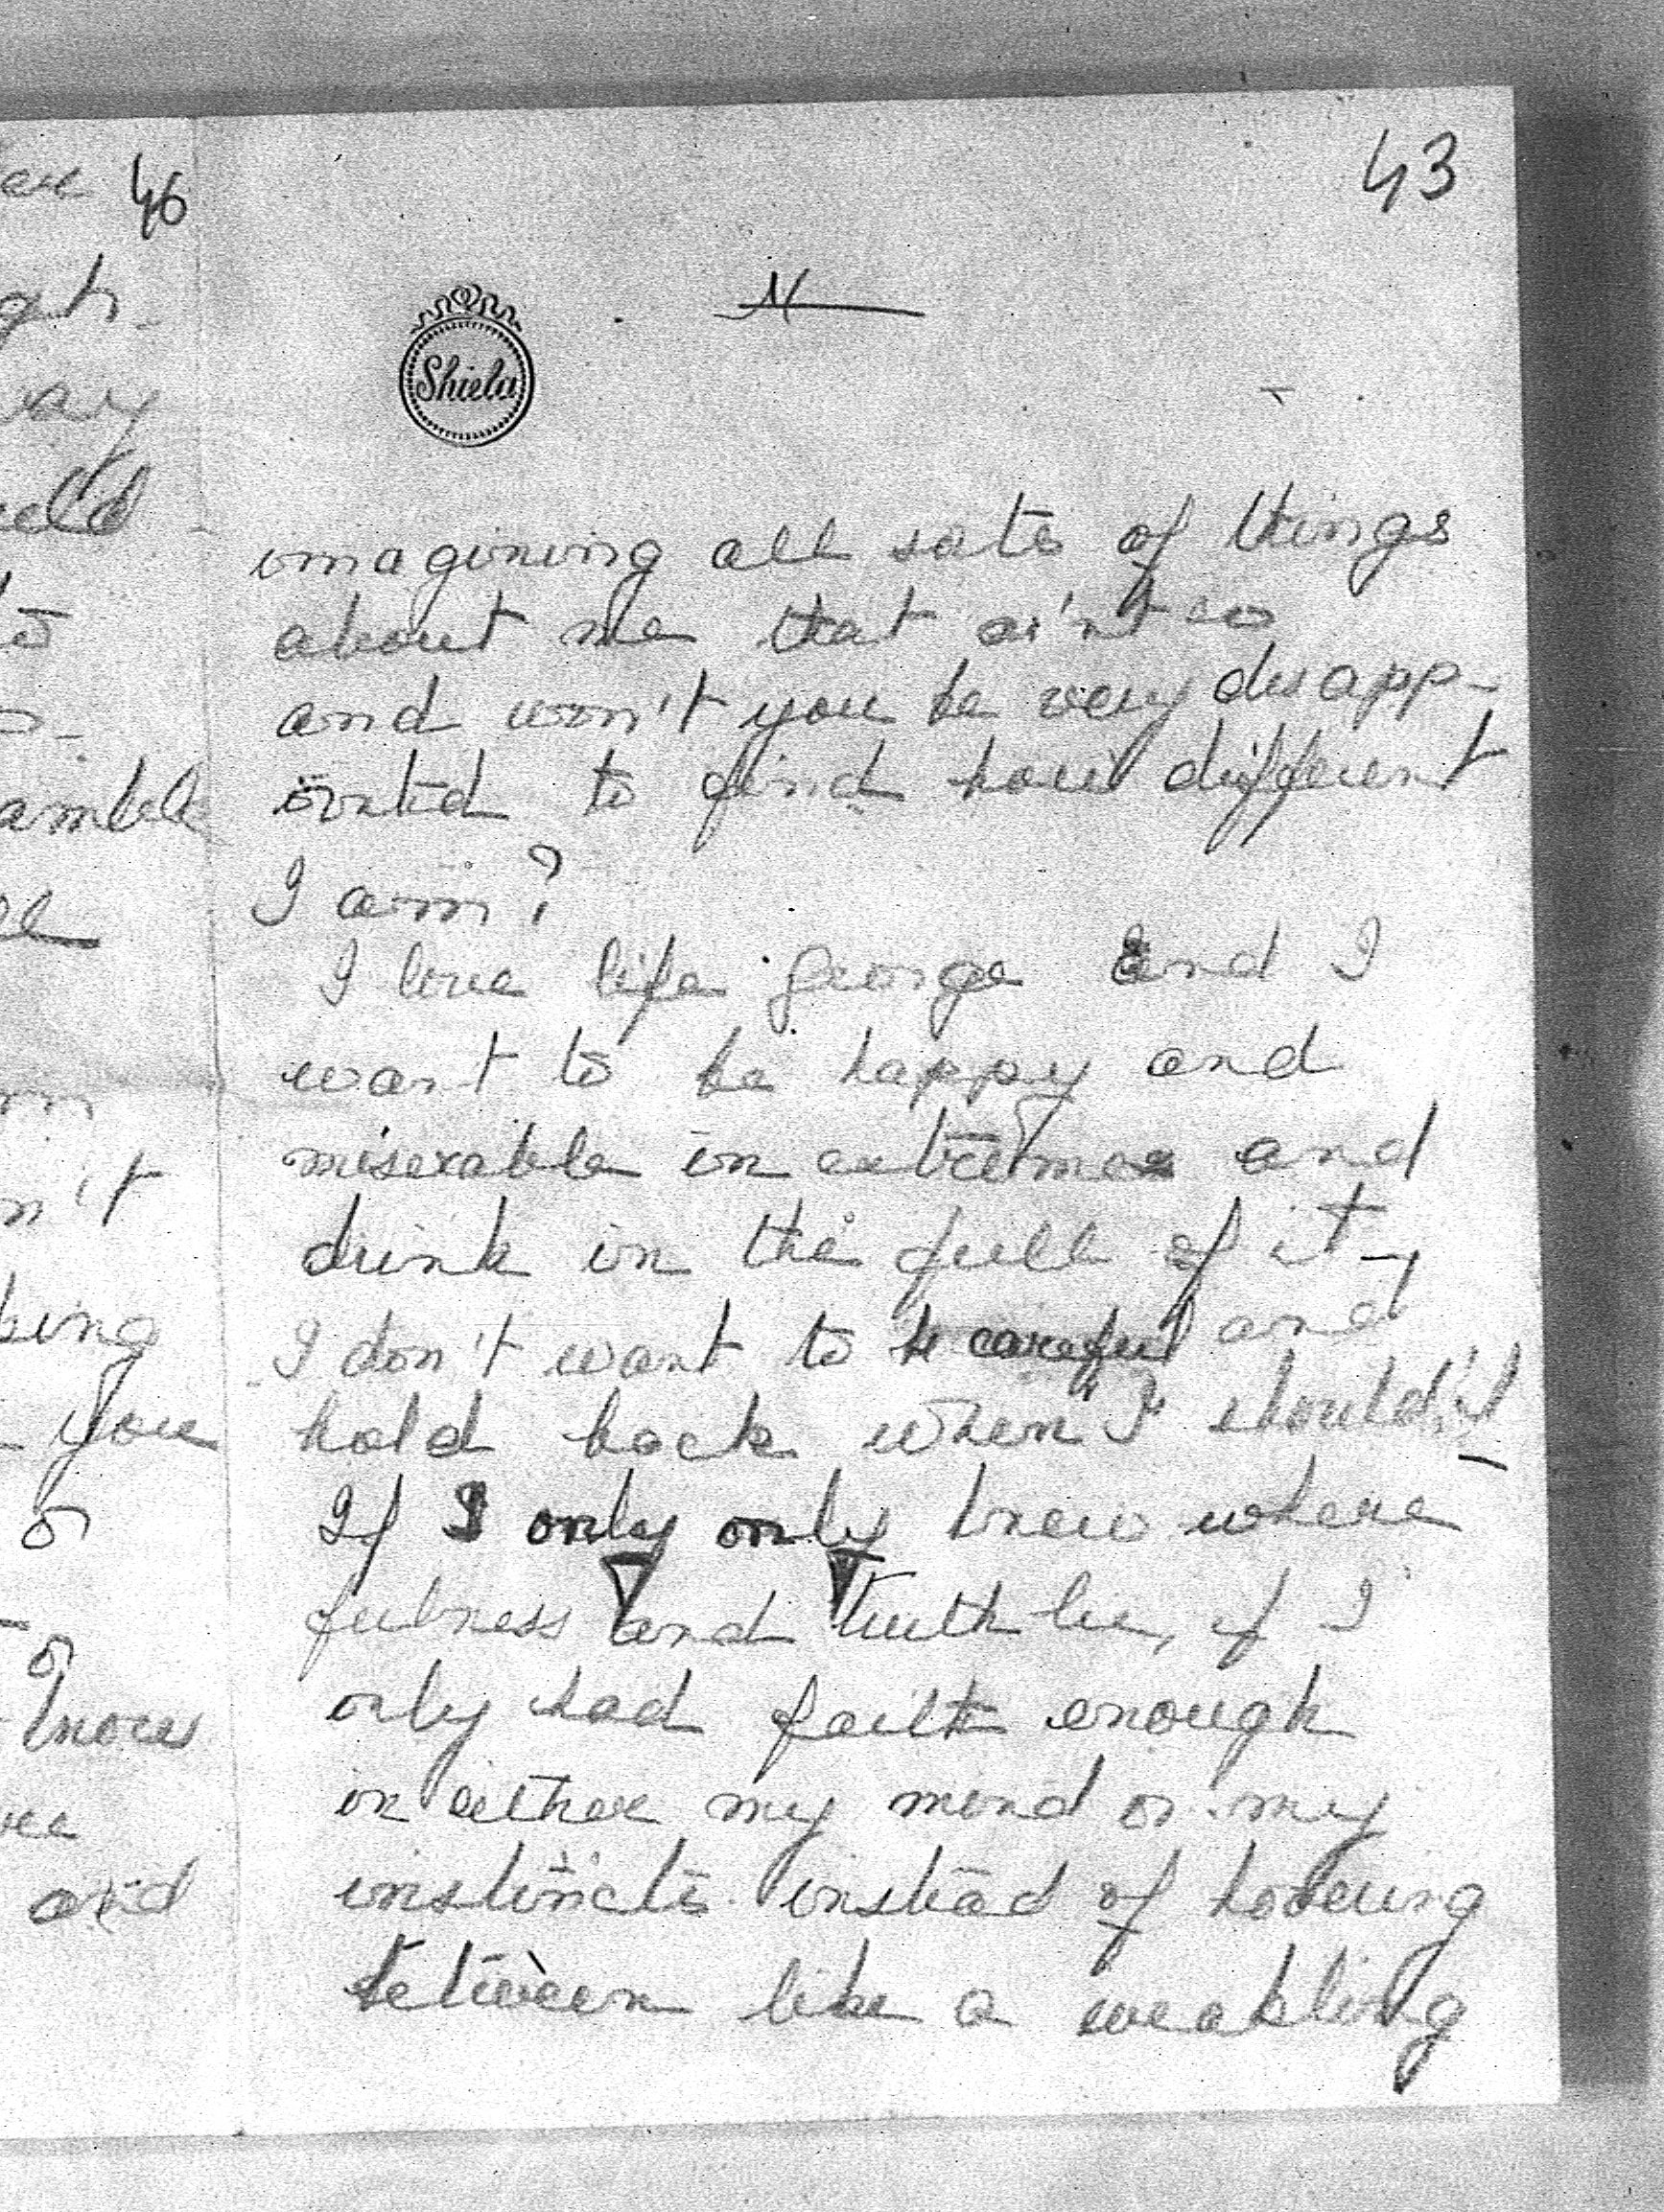 46
43
Shiela
imagining all sots of things
about me that ai'nt so
and won't you be very disapp-
ointed to find how different
I am?
I love life George and I
want to be happy and
miserable in extremes and
drink in the full of it -
I don't want to be careful and
hold back when I should'nt
If I only only knew where
fulness and truth lie, if I
only had faith enough
in either my mind or my
instincts instead of hovering
between like a weakling
ay
amble
n't
king
you
or
or
know
and